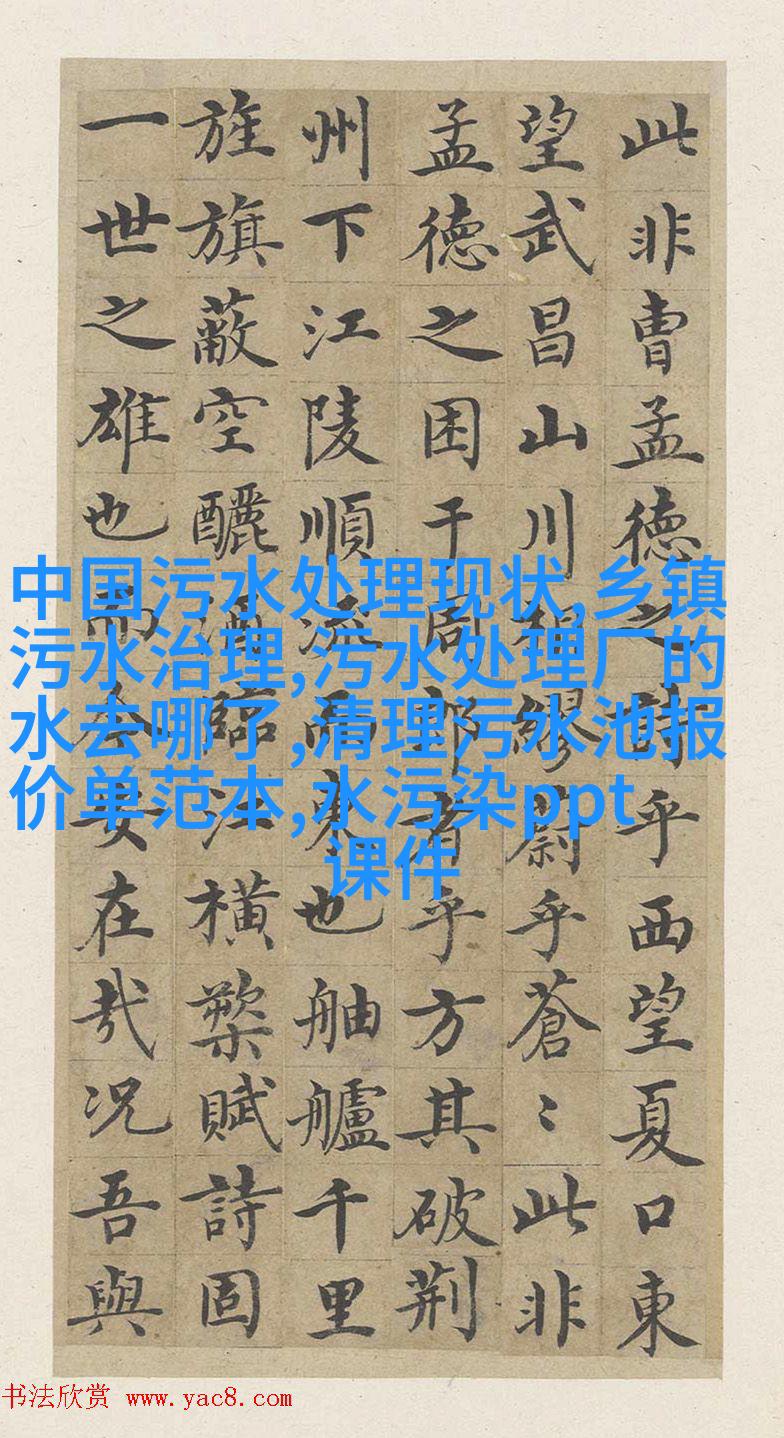 此非曺孟德之詩乎西望夏口東
望武昌山川相繆蔚乎蒼〻此非
孟德之困于周郎者乎方其破荆
州下江陵順流而東也舳艫千里
旌旗蔽空釃酒臨江橫槊賦詩固
一世之雄也而今安在哉况吾與
中国污水处理现状,乡镇
污水治理,污水处理厂的
水去哪了,清理污水池报
价单范本,水污染ppt
课件
书法欣赏 www.yac8.com